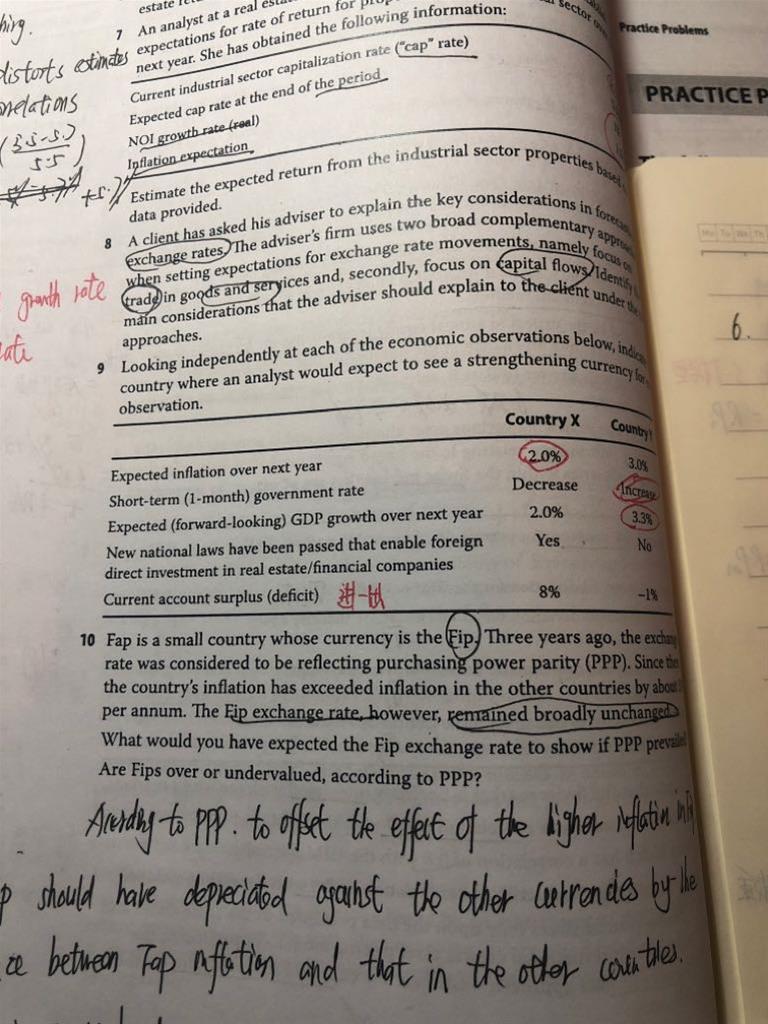 hing.
distorts estimates
rrelations
5.5
growth rate
7 An analyst at a real
expectations for rate of return for
next year. She has obtained the following information:
Current industrial sector capitalization rate ("cap" rate)
Expected cap rate at the end of the period
NOI growth rate (real)
Inflation expectation
Estimate the expected return from the industrial sector properties based
data provided.
8 A client has asked his adviser to explain the key considerations in
exchange rates. The adviser's firm uses two broad complementary
when setting expectations for exchange rate movements, namely focus on
trade in goods and services and, secondly, focus on capital flows. Identify
main considerations that the adviser should explain to the client under the
approaches.
9 Looking independently at each of the economic observations below,
country where an analyst would expect to see a strengthening currency for
observation.
Country X Country
Expected inflation over next year 2.0% 3.0%
Short-term (1-month) government rate Decrease Increase
Expected (forward-looking) GDP growth over next year 2.0% 3.3%
New national laws have been passed that enable foreign Yes No
direct investment in real estate/financial companies
Current account surplus (deficit) 8% –1%
10 Fap is a small country whose currency is the Fip. Three years ago, the
rate was considered to be reflecting purchasing power parity (PPP). Since
the country's inflation has exceeded inflation in the other countries by about
per annum. The Fip exchange rate, however, remained broadly unchanged.
What would you have expected the Fip exchange rate to show if PPP prevailed
Are Fips over or undervalued, according to PPP?
According to PPP. to offset the effect of the higher inflation in
p should have depreciated against the other currencies by the
ce between Fap inflation and that in the other countries.
Practice Problems
PRACTICE P
6.